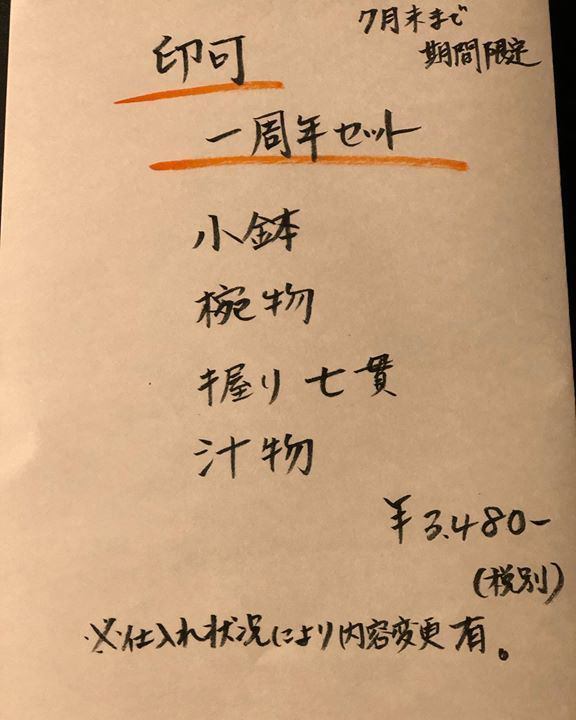 7月末まで
期間限定
印可
一周年セット
小鉢
椀物
握り七貫
汁物
¥3.480-
(税別)
※仕入れ状況により内容変更有。